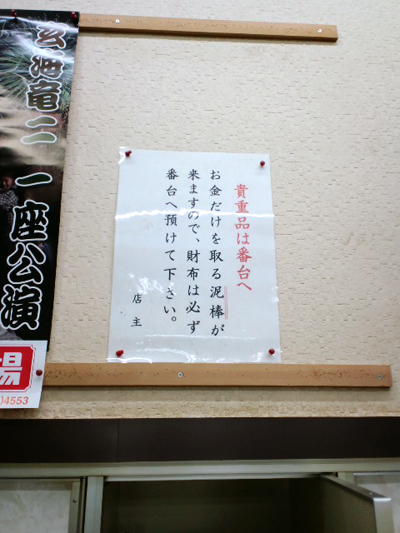 貴重品は番台へ
お金だけを取る泥棒が
来ますので、財布は必ず
番台へ預けて下さい。
店主
玄海竜二一座公演
場
4553